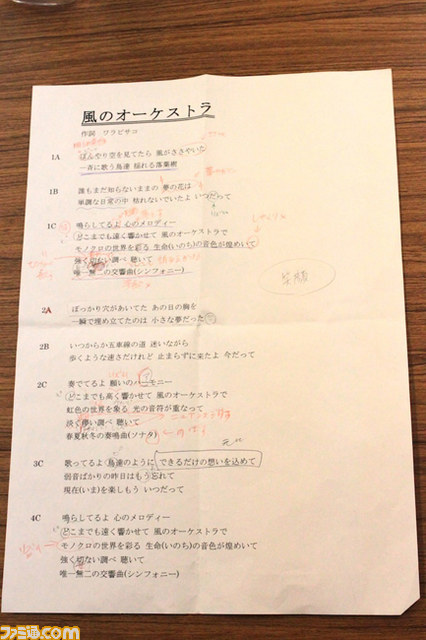 風のオーケストラ
作詞 ワラビサコ
1A ぼんやり空を見てたら 風がささやいた
一斉に歌う鳥達 揺れる落葉樹
1B 誰もまだ知らないままの 夢の花は
単調な日常の中 枯れないでいたよ いつだって
1C 鳴らしてるよ 心のメロディー
どこまでも遠く響かせて 風のオーケストラで
モノクロの世界を彩る 生命(いのち)の音色が煌めいて
強く切ない調べ 聴いて
唯一無二の交響曲(シンフォニー)
笑顔
2A ぽっかり穴があいてた あの日の胸を
一瞬で埋め立てたのは 小さな夢だった
2B いつからか五車線の道 迷いながら
歩くような速さだけれど 止まらずに来たよ 今だって
2C 奏でてるよ 願いのハーモニー
どこまでも高く響かせて 風のオーケストラで
虹色の世界を象る 光の音符が重なって
淡く儚い調べ 聴いて
春夏秋冬の奏鳴曲(ソナタ)
3C 歌ってるよ 鳥達のように できるだけの想いを込めて
弱音ばかりの昨日はもう忘れて
現在(いま)を楽しもう いつだって
4C 鳴らしてるよ 心のメロディー
どこまでも遠く響かせて 風のオーケストラで
モノクロの世界を彩る 生命(いのち)の音色が煌めいて
強く切ない調べ 聴いて
唯一無二の交響曲(シンフォニー)
ファミ通.com